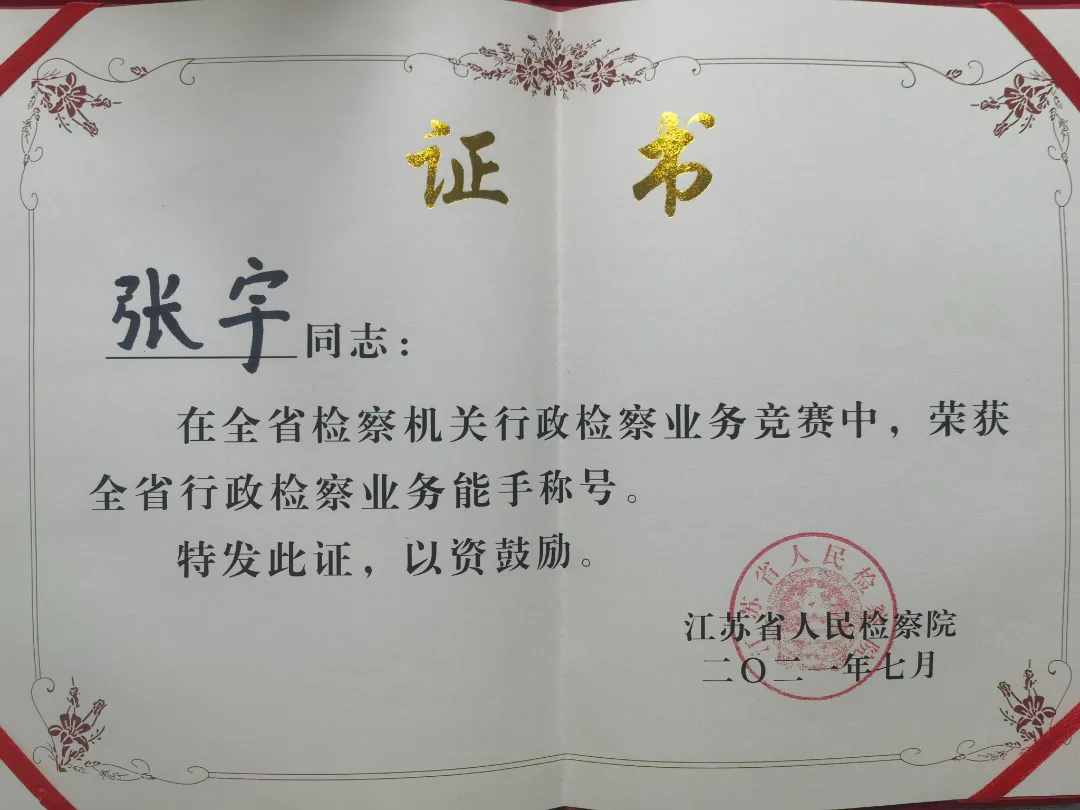 证书
张宇同志：
在全省检察机关行政检察业务竞赛中，荣获
全省行政检察业务能手称号。
特发此证，以资鼓励。
江苏省人民检察院
江苏省人民检察院
二〇二一年七月